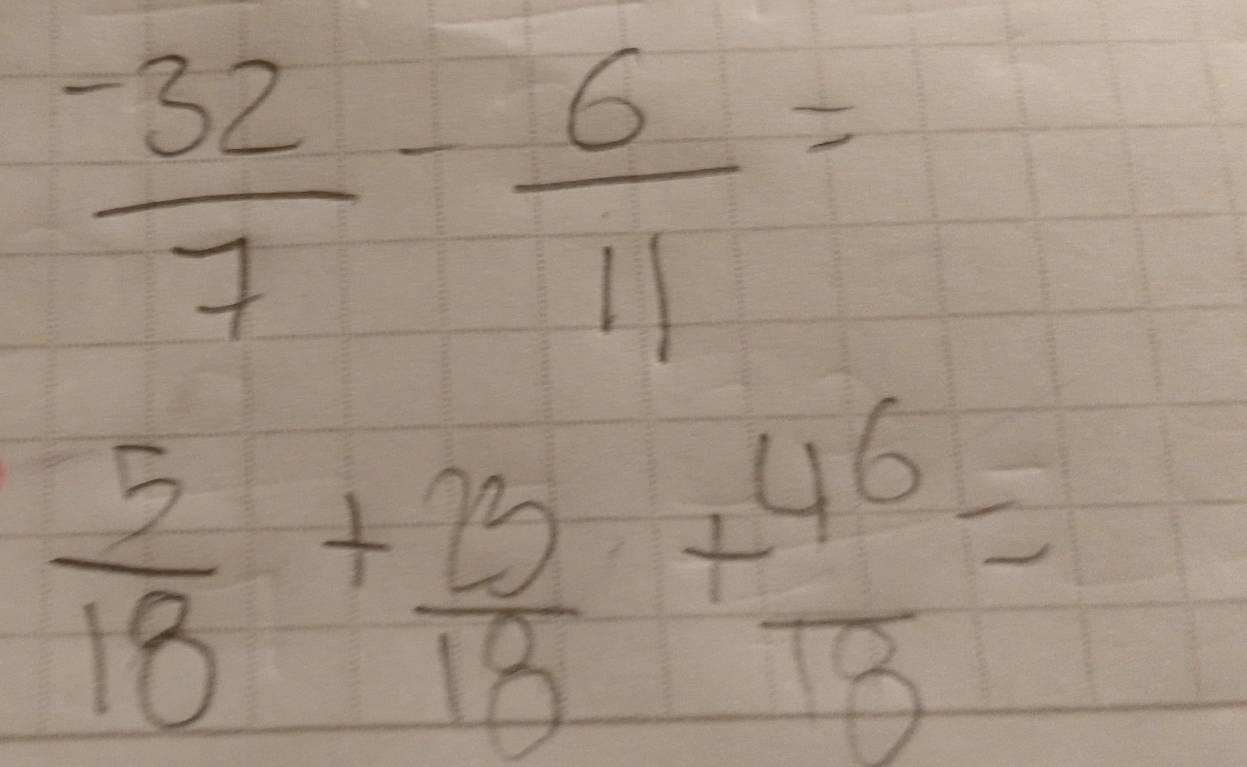 -32/7 - 6/11 =
5/18 + 23/18 + 46/18 =